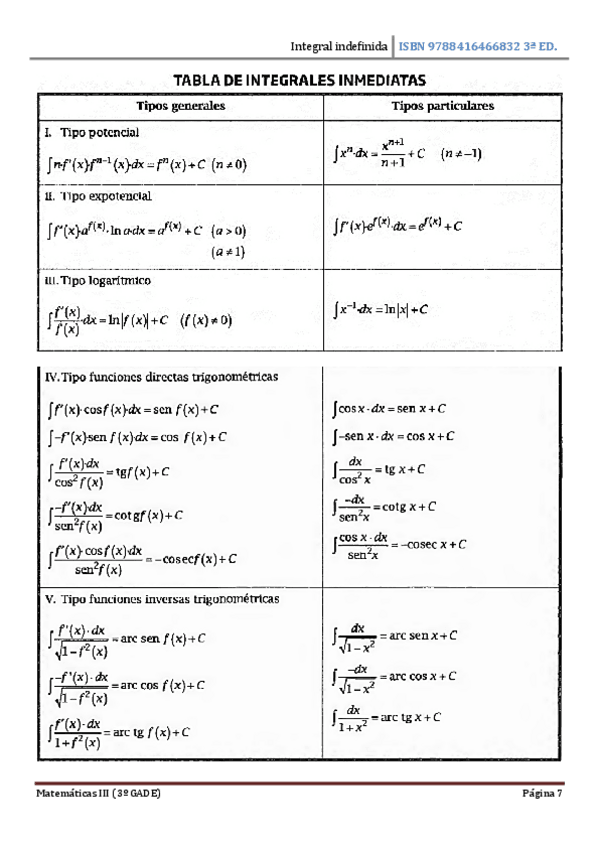 Integral indefinida ISBN 9788416466832 3ª ED.
TABLA DE INTEGRALES INMEDIATAS
Tipos generales Tipos particulares
I. Tipo potencial
∫n·f'(x)·fⁿ⁻¹(x)·dx = fⁿ(x) + C (n ≠ 0) ∫xⁿ·dx = xⁿ⁺¹/(n+1) + C (n ≠ −1)
II. Tipo expotencial
∫f'(x)·a^f(x)·ln a·dx = a^f(x) + C (a > 0) ∫f'(x)·e^f(x)·dx = e^f(x) + C
(a ≠ 1)
III. Tipo logarítmico
∫f'(x)/f(x)·dx = ln|f(x)| + C (f(x) ≠ 0) ∫x⁻¹·dx = ln|x| + C
IV. Tipo funciones directas trigonométricas
∫f'(x)·cos f(x)·dx = sen f(x) + C ∫cos x·dx = sen x + C
∫−f'(x)·sen f(x)·dx = cos f(x) + C ∫−sen x·dx = cos x + C
∫f'(x)·dx/cos² f(x) = tg f(x) + C ∫dx/cos² x = tg x + C
∫−f'(x)·dx/sen² f(x) = cotg f(x) + C ∫−dx/sen² x = cotg x + C
∫f'(x)·cos f(x)·dx/sen² f(x) = −cosec f(x) + C ∫cos x·dx/sen² x = −cosec x + C
V. Tipo funciones inversas trigonométricas
∫f'(x)·dx/√(1−f²(x)) = arc sen f(x) + C ∫dx/√(1−x²) = arc sen x + C
∫−f'(x)·dx/√(1−f²(x)) = arc cos f(x) + C ∫−dx/√(1−x²) = arc cos x + C
∫f'(x)·dx/(1+f²(x)) = arc tg f(x) + C ∫dx/(1+x²) = arc tg x + C
Matemáticas III (3º GADE) Página 7